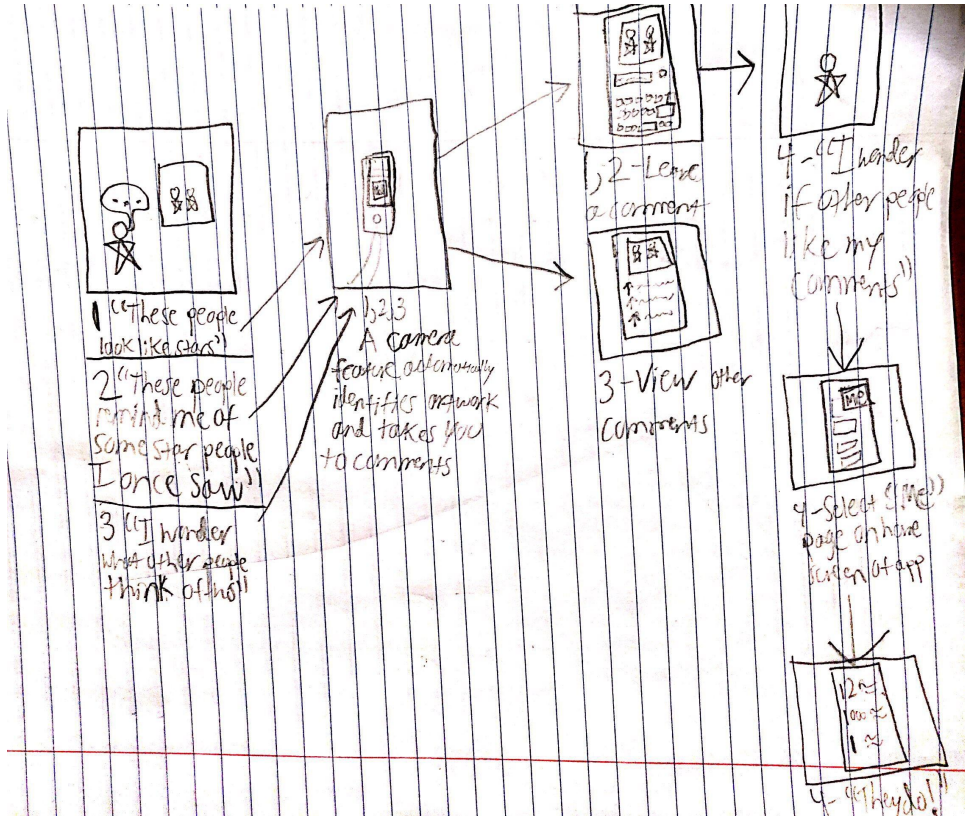 1 "These people
look like stars"
2 "These people
remind me of
some star people
I once saw"
3 "I wonder
what other people
think of this"
1,2,3
A camera
feature automatically
identifies artwork
and takes you
to comments
1,2-Leave
a comment
3-View other
comments
4-"I wonder
if other people
like my
comments"
Me
4-Select "Me"
page on home
screen of app
12
1000
1
4-"They do!"